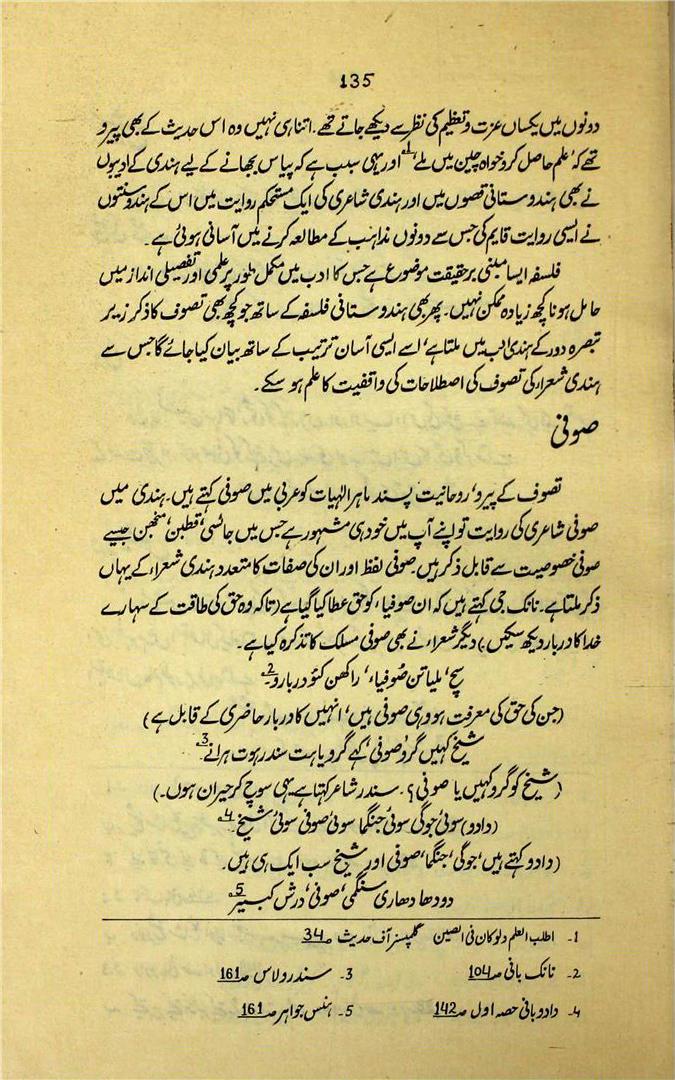 135
دونوں میں یکساں عزت و تعظیم کی نظر سے دیکھے جاتے تھے۔ اتنا ہی نہیں وہ اس حدیث کے بھی پیرو
تھے کہ ’علم حاصل کرو خواہ چین میں ملے‘1 اور یہی سبب ہے کہ پیاس بجھانے کے لیے ہندی کے ادیبوں
نے بھی ہندوستانی قصوں میں اور ہندی شاعری کی ایک مستحکم روایت میں اس کے ہندو سنتوں
نے ایسی روایت قایم کی جس سے دونوں مذاہب کے مطالعہ کرنے میں آسانی ہوئی ہے۔
فلسفہ ایسا مبنی بر حقیقت موضوع ہے جس کا ادب میں مکمل طور پر علمی اور تفصیلی انداز میں
حامل ہونا کچھ زیادہ ممکن نہیں۔ پھر بھی ہندوستانی فلسفہ کے ساتھ جو کچھ بھی تصوف کا ذکر زیر
تبصرہ دور کے ہندی ادب میں ملتا ہے‘ اسے ایسی آسان ترتیب کے ساتھ بیان کیا جائے گا جس سے
ہندی شعراء کی تصوف کی اصطلاحات کی واقفیت کا علم ہو سکے۔
صوفی
تصوف کے پیرو‘ روحانیت پسند ماہر الٰہیات کو عربی میں صوفی کہتے ہیں۔ ہندی میں
صوفی شاعری کی روایت تو اپنے آپ میں خود ہی مشہور ہے جس میں جائسی‘ قطبن‘ منجھن جیسے
صوفی خصوصیت سے قابل ذکر ہیں۔ صوفی لفظ اور ان کی صفات کا متعدد ہندی شعراء کے یہاں
ذکر ملتا ہے۔ نانک جی کہتے ہیں کہ ان صوفیاء کو حق عطا کیا گیا ہے (تاکہ وہ حق کی طاقت کے سہارے
خدا کا دربار دیکھ سکیں۔) دیگر شعراء نے بھی صوفی مسلک کا تذکرہ کیا ہے۔
سچ‘ ملیا تن صُوفیاء‘ راکھن کئو دربارو۔2
(جن کی حق کی معرفت ہو وہی صوفی ہیں‘ انہیں کا دربار حاضری کے قابل ہے)
شیخ کہیں گرو صوفی‘ کہے گرو یاہت سندر ہوت ہرانے۔3
(شیخ کو گرو کہیں یا صوفی؟۔ سندر شاعر کہتا ہے یہی سوچ کر حیران ہوں۔)
(دادو) سوئی جوگی سوئی جنگما سوئی صوفی سوئی شیخ۔4
(دادو کہتے ہیں‘ جوگی‘ جنگما‘ صوفی اور شیخ سب ایک ہی ہیں۔
دودھا دھاری سنگمی‘ صوفی‘ درش کبیر۔5
1۔ اطلب العلم ولو کان فی الصین گلمپسز آف حدیث صـ 34
2۔ نانک بانی صـ 104 3۔ سندر ولاس صـ 161
4۔ دادو بانی حصہ اول صـ 142 5۔ ہنس جواہر صـ 161